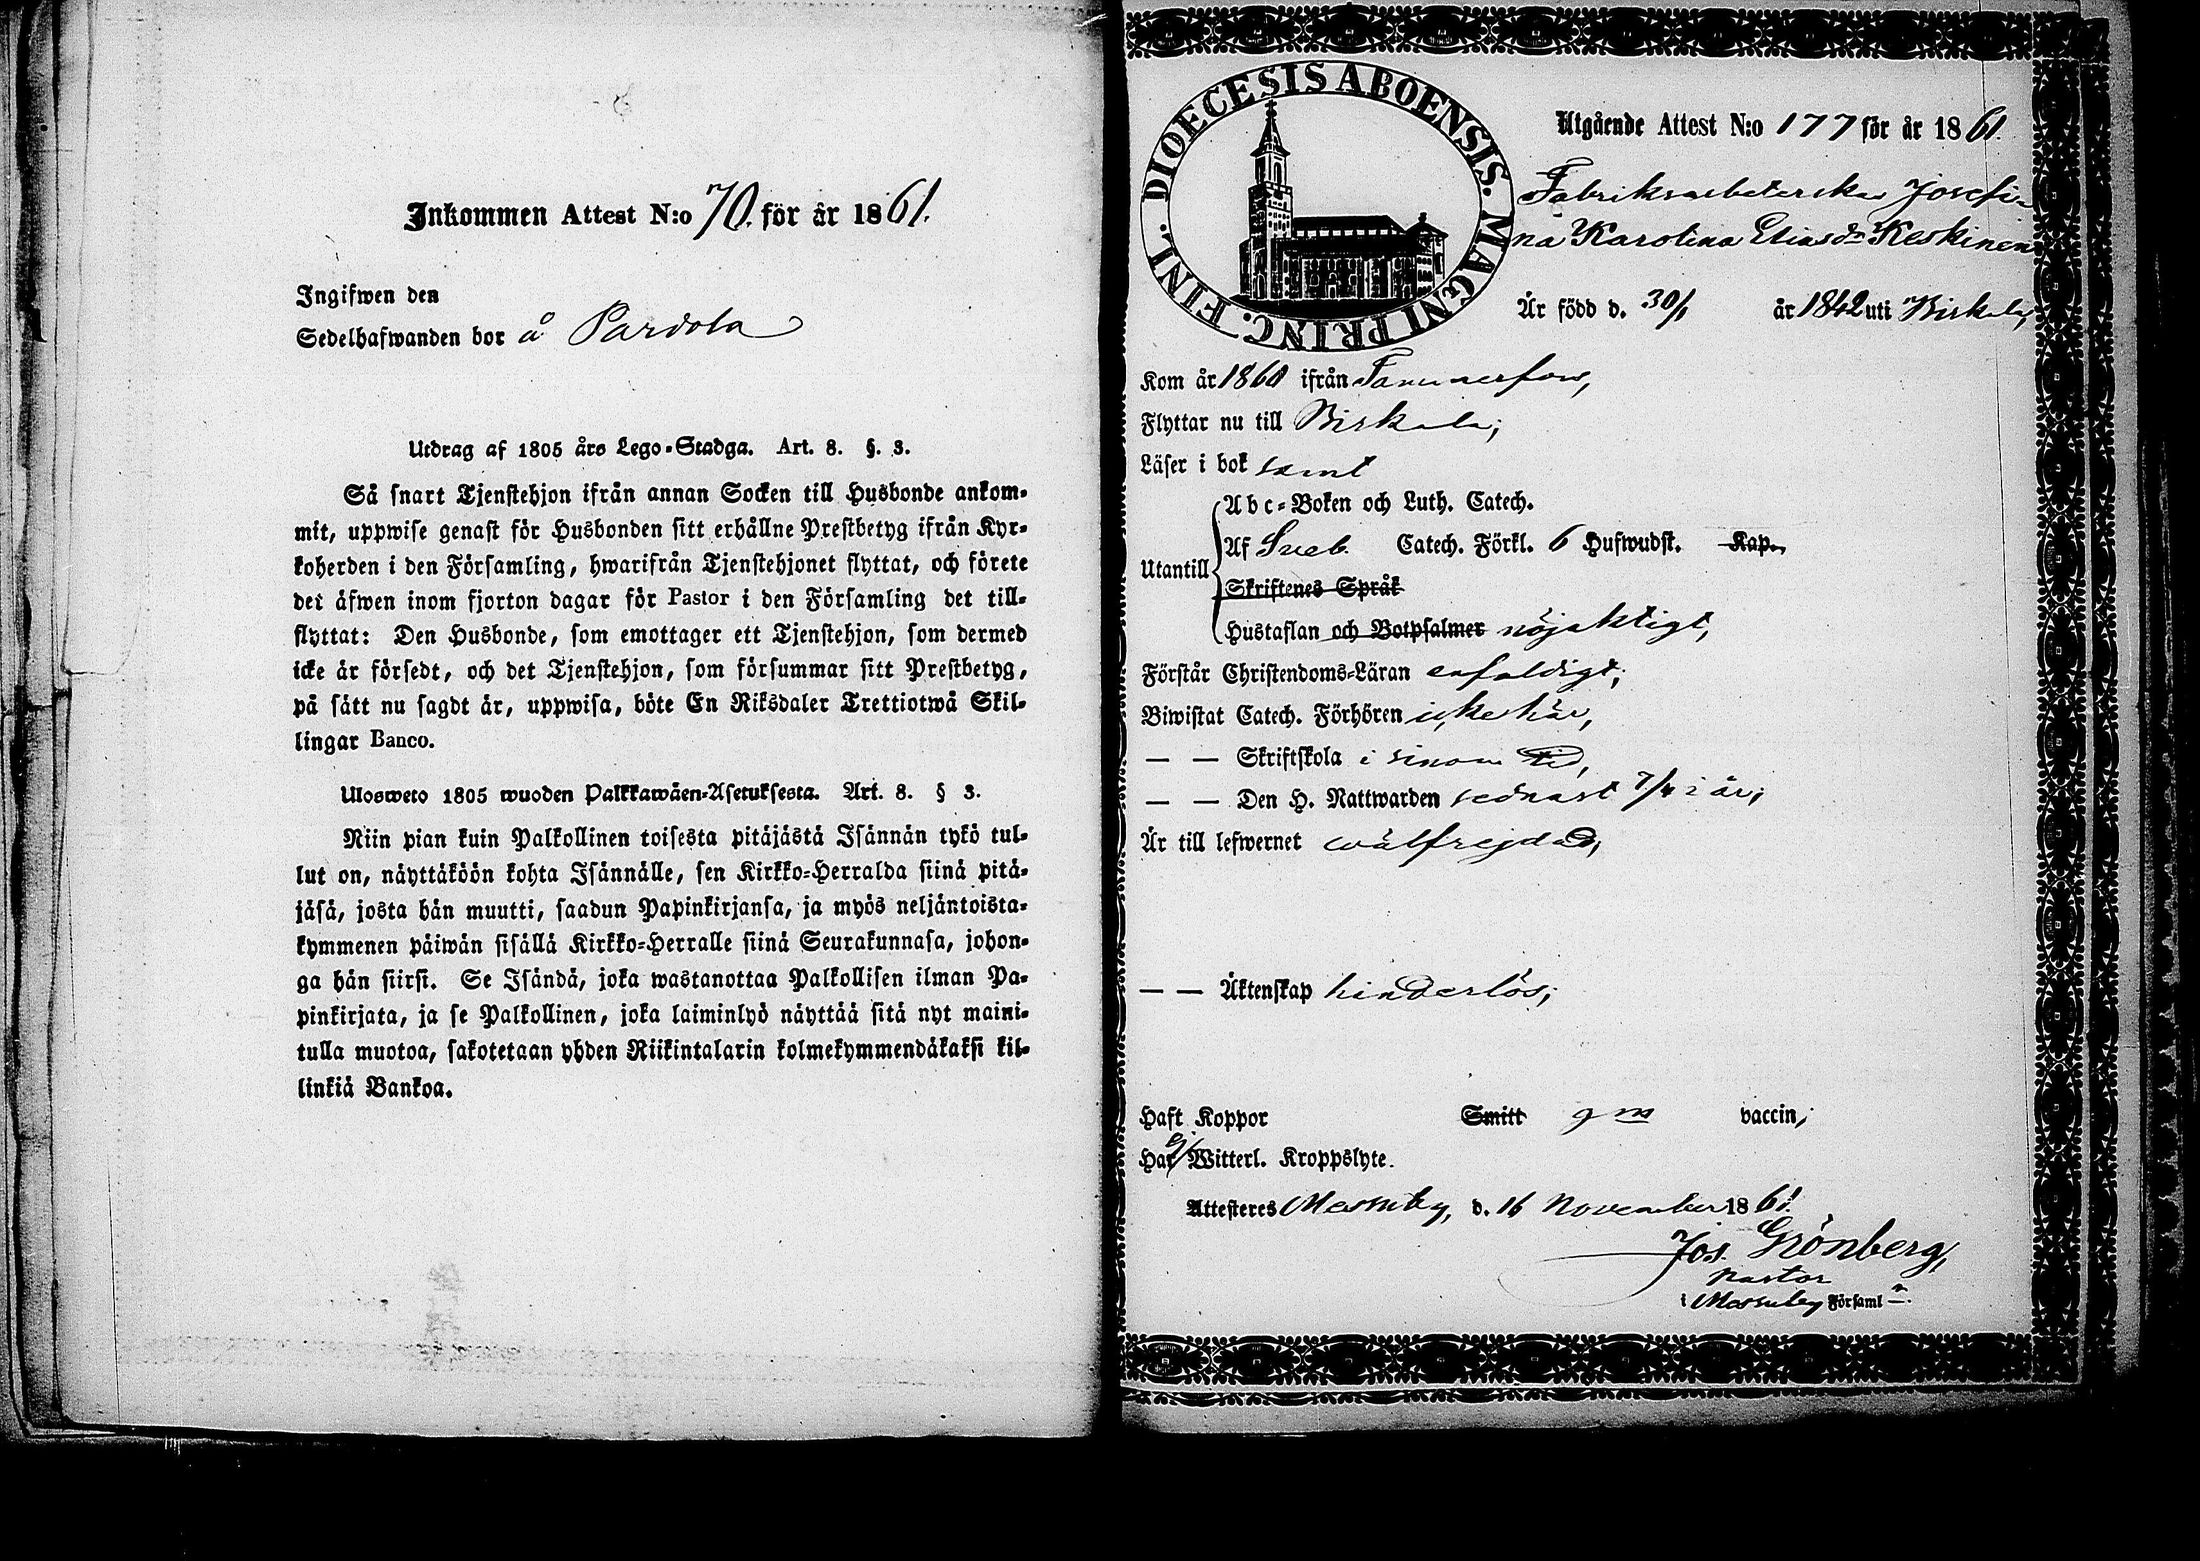 Inkommen Attest N:o 70. för år 1861.
Ingifwen den
Sedelhafwanden bor å Pardola
Utdrag af 1805 års Lego-Stadga. Art. 8. §. 3.
Så snart Tjenstehjon ifrån annan Socken till Husbonde ankom-
mit, uppwise genast för Husbonden sitt erhållne Prestbetyg ifrån Kyr-
koherden i den Församling, hwarifrån Tjenstehjonet flyttat, och förete
det äfwen inom fjorton dagar för Pastor i den Församling det till-
flyttat: Den Husbonde, som emottager ett Tjenstehjon, som dermed
icke är försedt, och det Tjenstehjon, som försummar sitt Prestbetyg,
på sätt nu sagdt är, uppwisa, böte En Riksdaler Trettiotwå Skil-
lingar Banco.
Ulosweto 1805 wuoden Palkkawäen-Asetuksesta. Art. 8. § 3.
Niin pian kuin Palkollinen toisesta pitäjästä Isännän tykö tul-
lut on, näyttäköön kohta Isännälle, sen Kirkko-Herralda siinä pitä-
jäsä, josta hän muutti, saadun Papinkirjansa, ja myös neljäntoista-
kymmenen päiwän sisällä Kirkko-Herralle siinä Seurakunnasa, johon-
ga hän siirsi. Se Isändä, joka wastanottaa Palkollisen ilman Pa-
pinkirjata, ja se Palkollinen, joka laiminlyö näyttää sitä nyt maini-
tulla muotoa, sakotetaan yhden Riikintalarin kolmekymmendäkaksi kil-
linkiä Bankoa.
DIOECESIS ABOENSIS. MAGNI PRINC. FINL.
Utgående Attest N:o 177 för år 1861.
Fabriksarbeterskan Josefi-
na Karolina Eliasdr Keskinen
Är född d. 30/1 år 1842 uti Birkala,
Kom år 1860 ifrån Tammerfors,
Flyttar nu till Birkala;
Läser i bok samt
Abc-Boken och Luth. Catech.
Utantill Af Sveb. Catech. Förkl. 6 Hufwudst. Kap.
Skriftenes Språk
Hustaflan och Botpsalmer nöjaktigt,
Förstår Christendoms-Läran enfaldigt;
Biwistat Catech. Förhören icke här,
— — Skriftskola i sinom tid,
— — Den H. Nattwarden sednast 7/4 i år;
Är till lefwernet wälfrejdad,
— — Äktenskap hinderlös;
Haft Koppor Smitt gm vaccin;
Har ej Witterl. Kroppslyte.
Attesteres Messuby, d. 16 November 1861.
Jos. Grönberg,
Pastor
i Messuby Församl n.